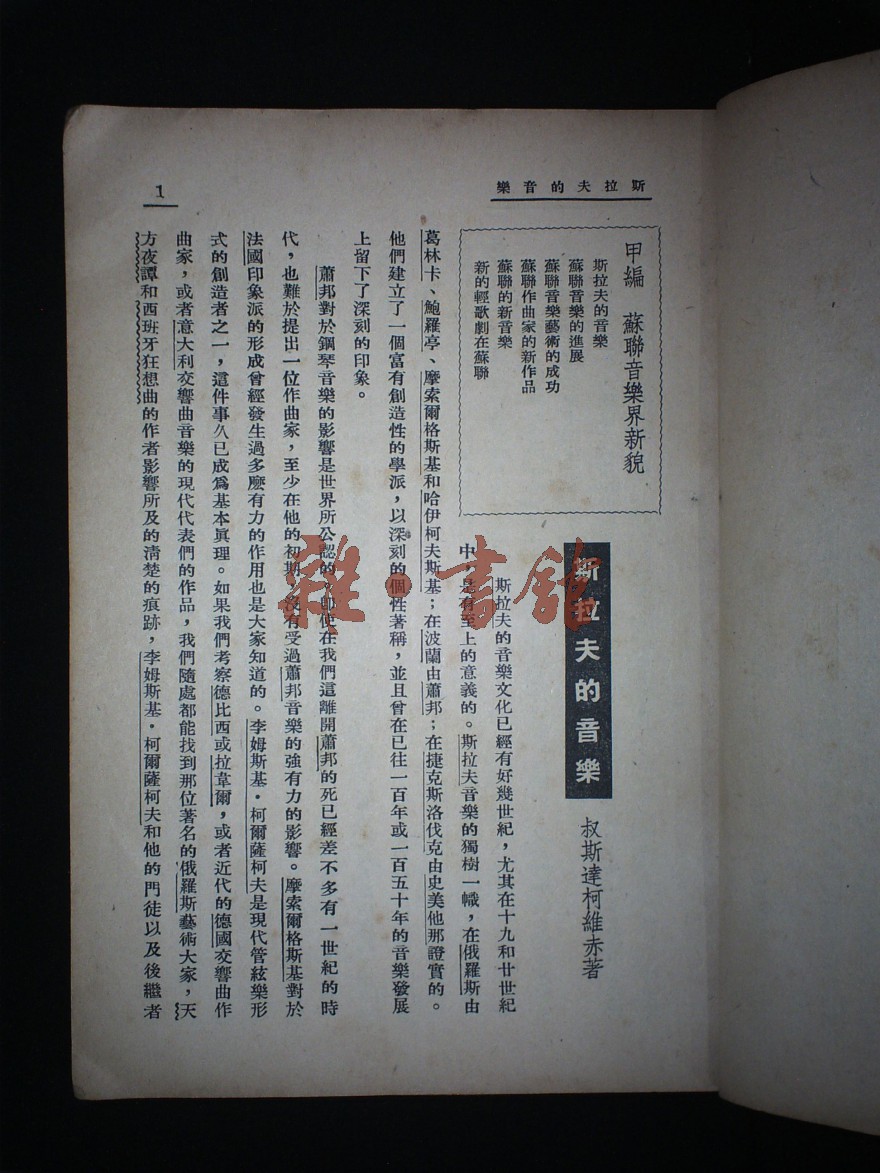 斯拉夫的音樂
甲編　蘇聯音樂界新貌
斯拉夫的音樂
蘇聯音樂的進展
蘇聯音樂藝術的成功
蘇聯作曲家的新作品
蘇聯的新音樂
新的輕歌劇在蘇聯
斯拉夫的音樂
叔斯達柯維赤著
斯拉夫的音樂文化已經有好幾世紀，尤其在十九和廿世紀
中，是有至上的意義的。斯拉夫音樂的獨樹一幟，在俄羅斯由
葛林卡、鮑羅亭、摩索爾格斯基和哈伊柯夫斯基；在波蘭由蕭邦；在捷克斯洛伐克由史美他那證實的。
他們建立了一個富有創造性的學派，以深刻的個性著稱，並且曾在已往一百年或一百五十年的音樂發展
上留下了深刻的印象。
蕭邦對於鋼琴音樂的影響是世界所公認的。即使在我們這離開蕭邦的死已經差不多有一世紀的時
代，也難於提出一位作曲家，至少在他的初期，沒有受過蕭邦音樂的強有力的影響。摩索爾格斯基對於
法國印象派的形成曾經發生過多麼有力的作用也是大家知道的。李姆斯基・柯爾薩柯夫是現代管絃樂形
式的創造者之一，這件事久已成爲基本眞理。如果我們考察德比西或拉韋爾，或者近代的德國交響曲作
曲家，或者意大利交響曲音樂的現代代表們的作品，我們隨處都能找到那位著名的俄羅斯藝術大家，天
方夜譚和西班牙狂想曲的作者影響所及的清楚的痕跡，李姆斯基・柯爾薩柯夫和他的門徒以及後繼者
1
雜・書館